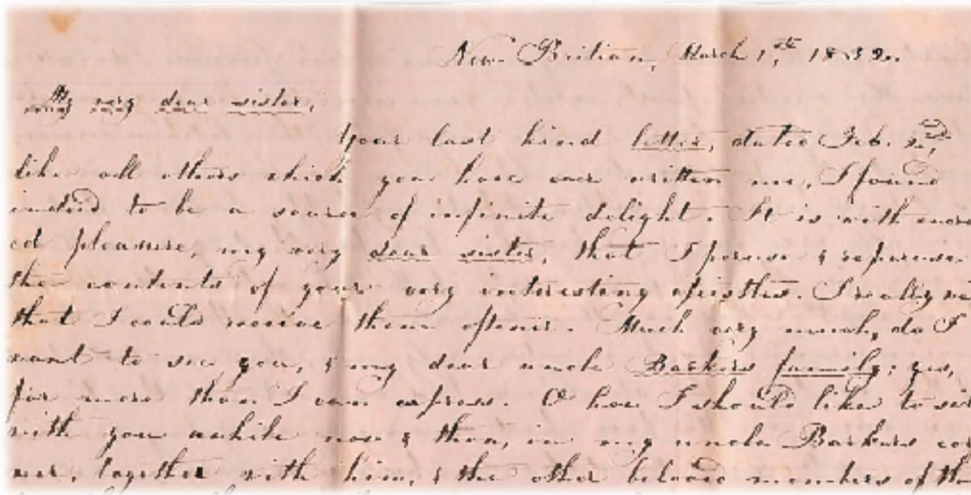 New Britian, March 1st, 1832.
My very dear sister,
Your last kind letter, dated Feb. 2nd,
like all others which you have ever written me, I found
indeed to be a source of infinite delight. It is with
ed pleasure, my very dear sister, that I peruse & reperuse
the contents of your very interesting epistles. I really
that I could receive them oftener. Much very much, do I
want to see you, & my dear uncle Barkers family; yes,
far more than I can express. O how I should like to
with you awhile now & then, in my uncle Barkers
together with him, & the other beloved members of the